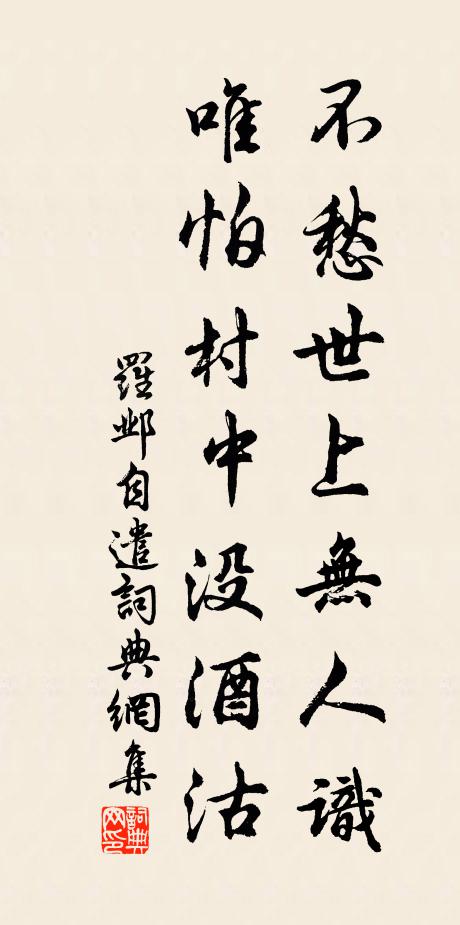 不愁世上無人識
唯怕村中没酒沽
羅邺自遣詞典網集
詞典网印